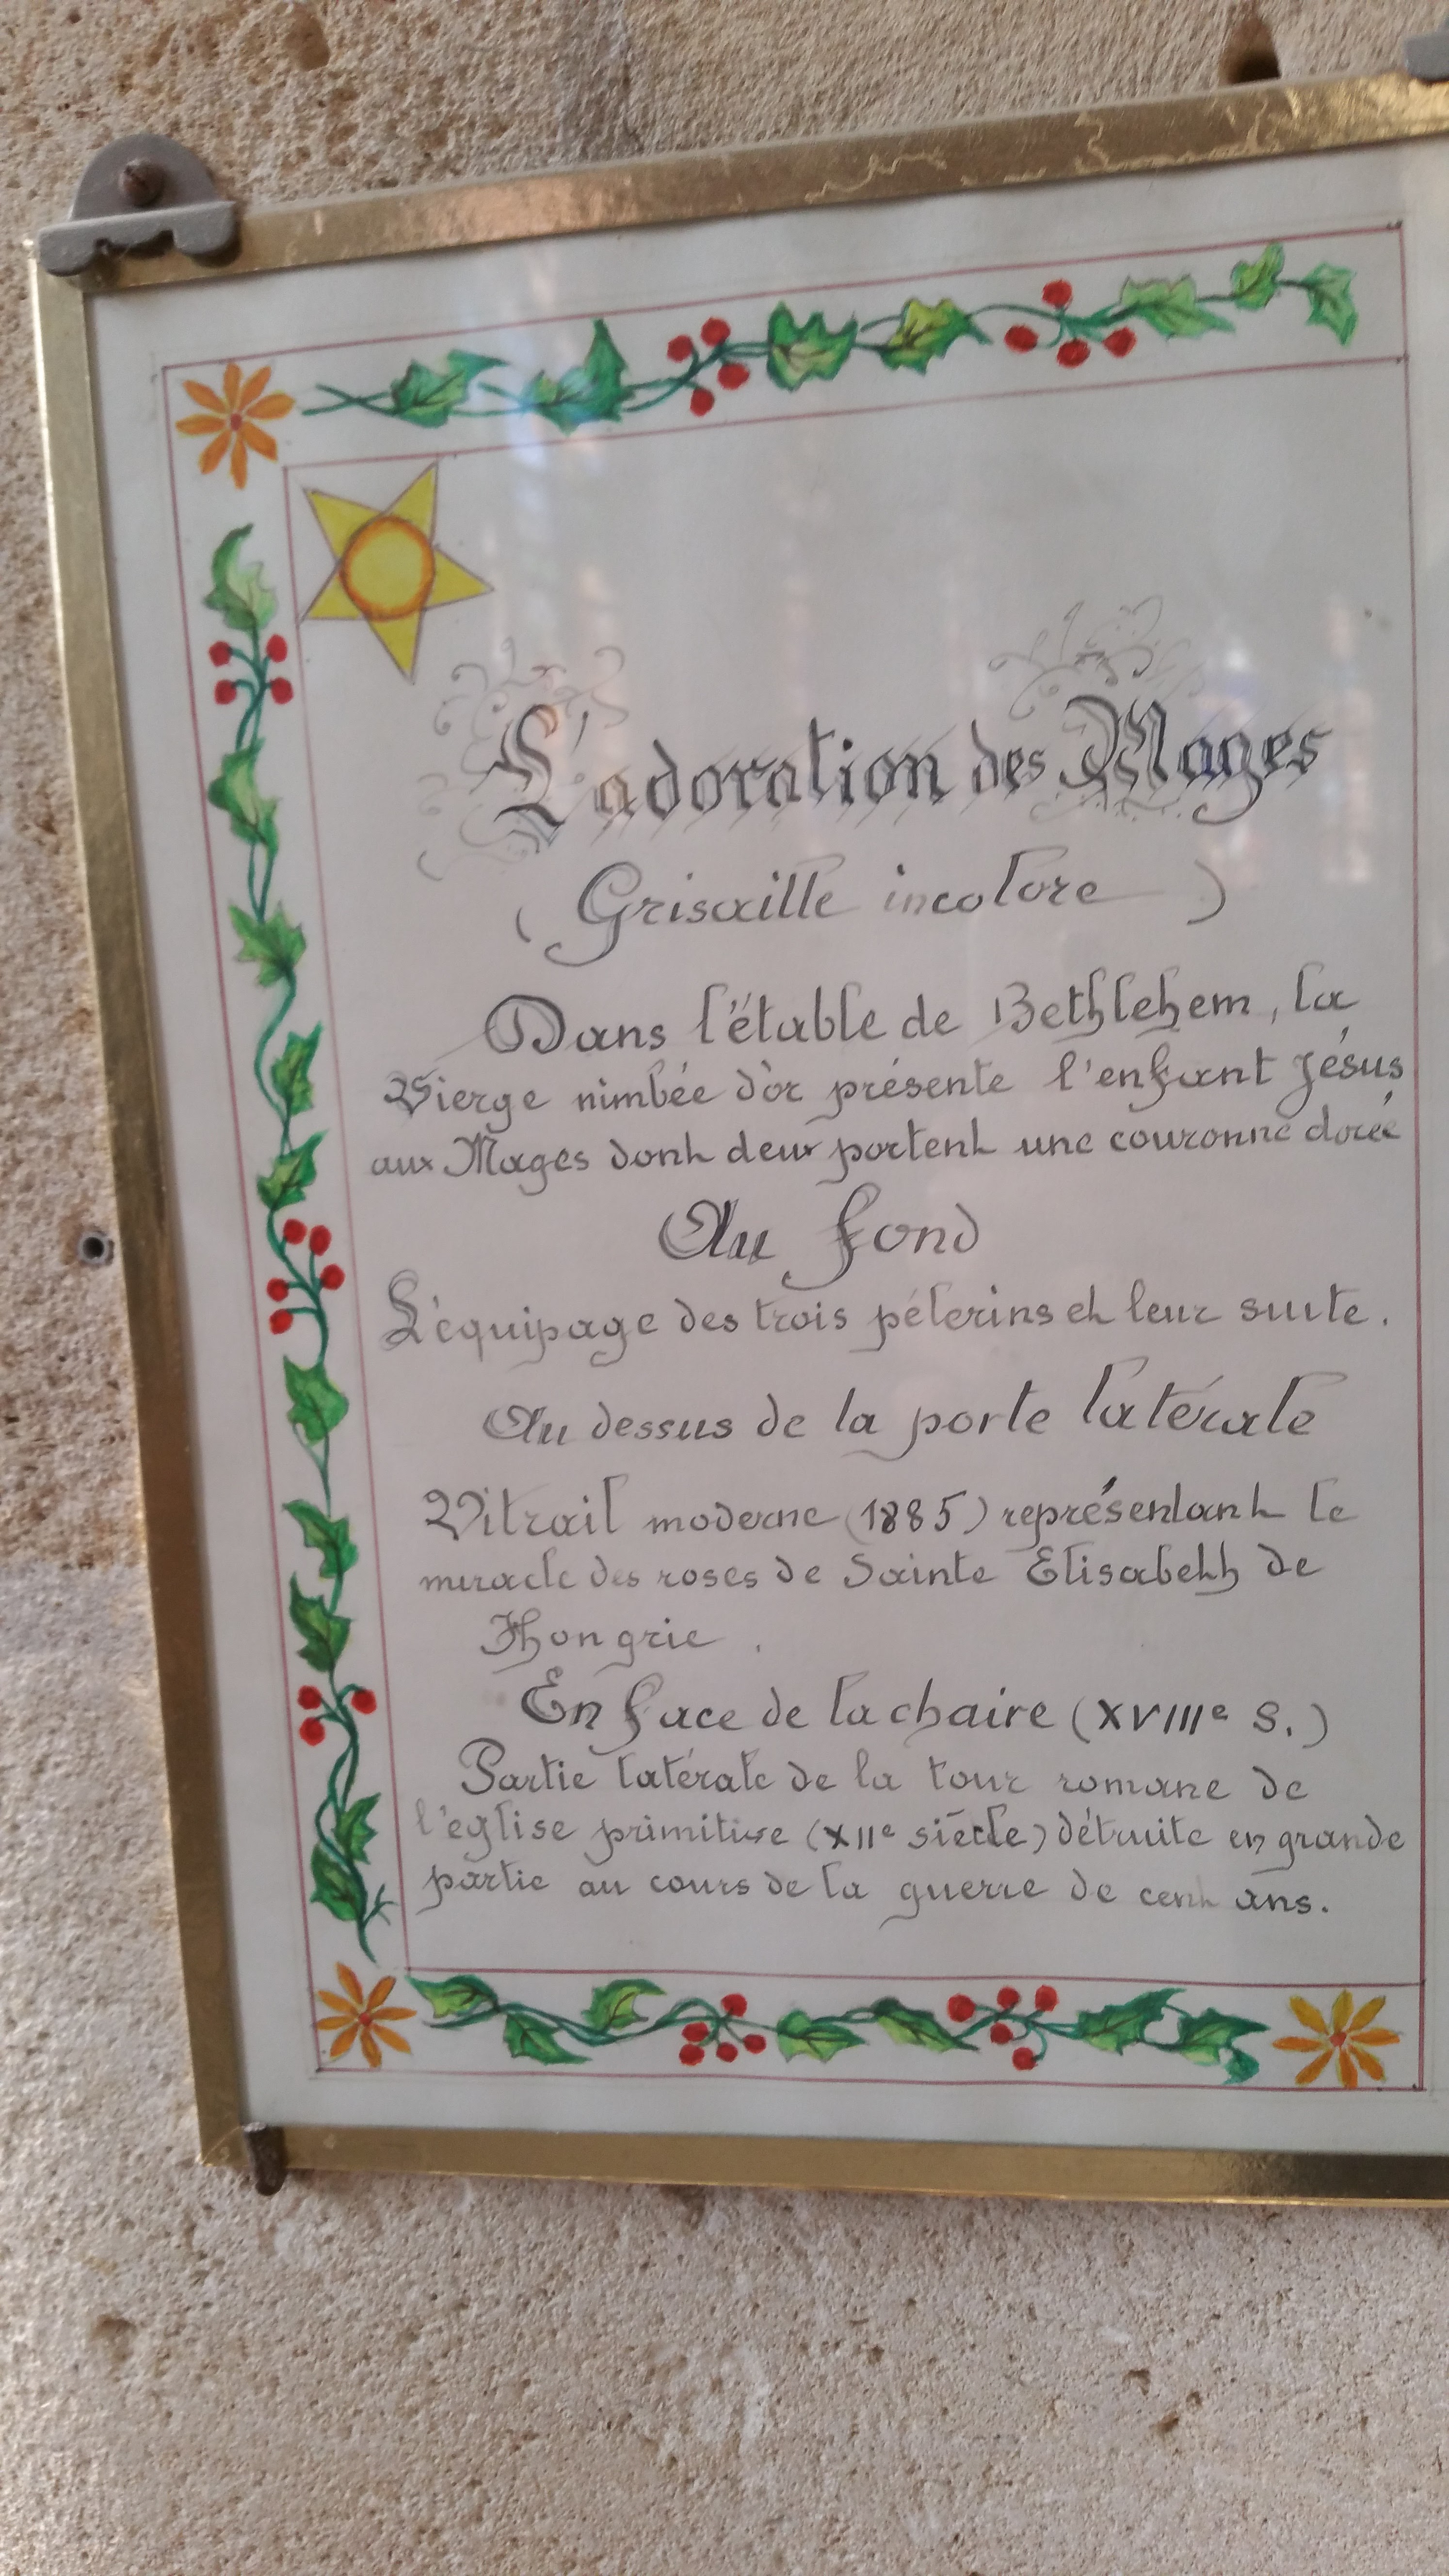 L'adoration des Mages
( Grisaille incolore )
Dans l'étable de Bethlehem, la
Vierge nimbée d'or présente l'enfant Jésus
aux Mages dont deux portent une couronne dorée
Au fond
L'équipage des trois pélerins et leur suite.
Au dessus de la porte latérale
Vitrail moderne (1885) représentant le
miracle des roses de Sainte Elisabeth de
Hongrie .
En face de la chaire (XVIIIe S.)
Partie latérale de la tour romane de
l'église primitive (XIIe siècle) détruite en grande
partie au cours de la guerre de cent ans.